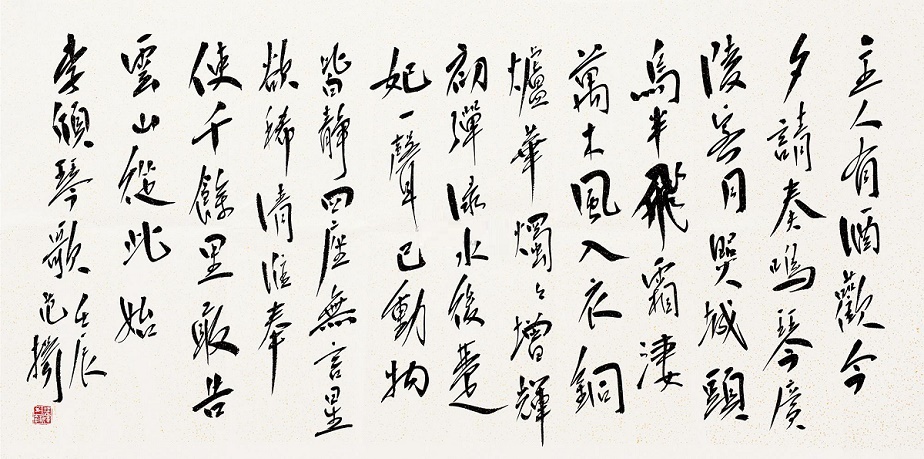 主人有酒歡今
夕請奏鳴琴廣
陵客月照城頭
烏半飛霜淒
萬木風入衣銅
爐華燭々增輝
初彈淥水後楚
妃一聲已動物
皆靜四座無言星
欲稀清淮奉
使千餘里敢告
雲山從此始
李頎琴歌
壬辰
范